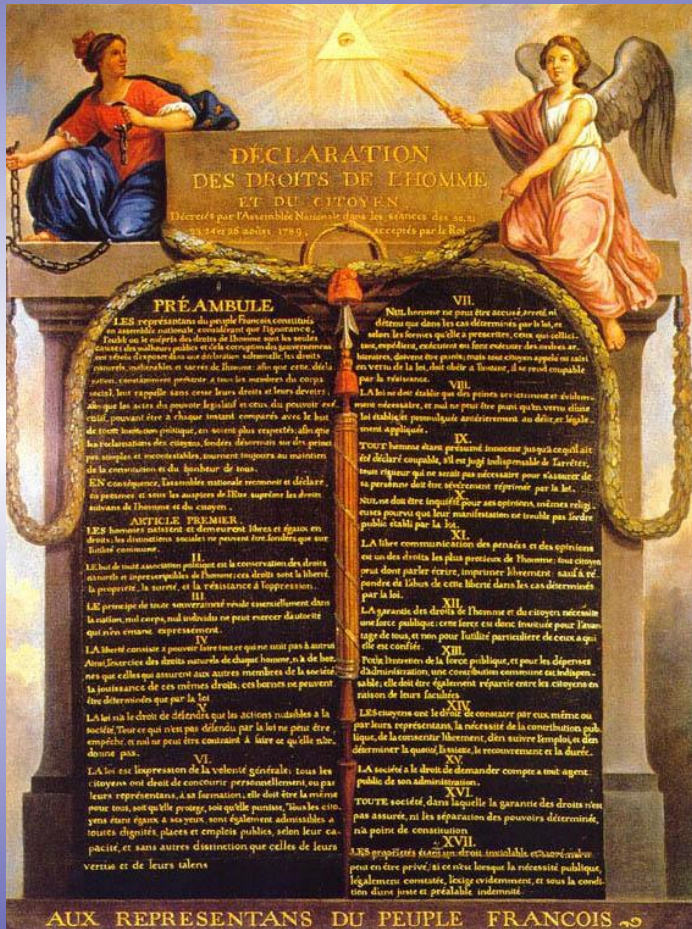 DÉCLARATION
DES DROITS DE L'HOMME
ET DU CITOYEN
Décretés par l'Assemblée Nationale dans les séances des 20, 21
23, 24 et 26 août 1789, acceptés par le Roi
PRÉAMBULE
LES représentans du peuple François, constitués
en assemblée nationale, considérant que l'ignorance,
l'oubli ou le mépris des droits de l'homme sont les seules
causes des malheurs publics et de la corruption des gouvernemens
ont résolu d'exposer dans une déclaration solemnelle, les droits
naturels, inaliénables et sacrés de l'homme; afin que cette décla
ration, constamment présente a tous les membres du corps
social, leur rappelle sans cesse leurs droits et leurs devoirs;
afin que les actes du pouvoir législatif et ceux du pouvoir exé
cutif, pouvant être a chaque instant comparés avec le but
de toute institution politique, en soient plus respectés; afin que
les reclamations des citoyens, fondées désormais sur des princi
pes simples et incontestables, tournent toujours au maintien
de la constitution et du bonheur de tous.
EN conséquence, l'assemblée nationale reconnoit et déclare,
en presence et sous les auspices de l'Etre suprême les droits
suivans de l'homme et du citoyen.
ARTICLE PREMIER.
LES hommes naissent et demeurent libres et égaux en
droits; les distinctions sociales ne peuvent être fondées que sur
l'utilité commune.
II.
LE but de toute association politique est la conservation des droits
naturels et inprescriptibles de l'homme; ces droits sont la liberté,
la propriété, la sureté, et la résistance à l'oppression.
III.
LE principe de toute souveraineté réside essentiellement dans
la nation, nul corps, nul individu ne peut exercer d'autorité
qui n'en émane expressément.
IV.
LA liberté consiste a pouvoir faire tout ce qui ne nuit pas à autrui
Ainsi, l'exercice des droits naturels de chaque homme, n'a de bor-
nes que celles qui assurent aux autres membres de la société
la jouissance de ces mêmes droits; ces bornes ne peuvent
être déterminées que par la loi
V.
LA loi n'a le droit de défendre que les actions nuisibles a la
société. Tout ce qui n'est pas défendu par la loi ne peut être
empêché, et nul ne peut être contraint à faire ce qu'elle n'or-
donne pas.
VI.
LA loi est l'expression de la volonté générale; tous les
citoyens ont droit de concourir personnellement, ou par
leurs représentans, à sa formation; elle doit être la même
pour tous, soit qu'elle protege, soit qu'elle punisse. Tous les cito-
yens étant égaux à ses yeux, sont également admissibles a
toutes dignités, places et emplois publics, selon leur ca-
pacité, et sans autres distinction que celles de leurs
vertus et de leurs talens
VII.
NUL homme ne peut être accusé, arreté, ni
détenu que dans les cas déterminés par la loi, et
selon les formes qu'elle a prescrites, ceux qui sollici-
tent, expédient, exécutent ou font exécuter des ordres ar-
bitraires, doivent être punis; mais tout citoyen appelé ou saisi
en vertu de la loi, doit obéir a l'instant, il se rend coupable
par la résistance.
VIII.
LA loi ne doit établir que des peines strictement et évidem-
ment nécessaire, et nul ne peut être puni qu'en vertu d'une
loi établie, et promulguée antérieurement au délit, et légale-
ment appliquée.
IX.
TOUT homme étant présumé innocent jusqu'à ce qu'il ait
été déclaré coupable, s'il est jugé indispensable de l'arrêter,
toute rigueur qui ne serait pas nécessaire pour s'assurer de
sa personne doit être sévèrement réprimée par la loi.
X.
NUL ne doit être inquiété pour ses opinions, mêmes religi
euses pourvu que leur manifestation ne trouble pas l'ordre
public établi par la loi.
XI.
LA libre communication des pensées et des opinions
est un des droits les plus precieux de l'homme; tout citoyen
peut dont parler écrire, imprimer librement; sauf à ré
pondre de l'abus de cette liberté dans les cas déterminés
par la loi.
XII.
LA garantie des droits de l'homme et du citoyen nécessite
une force publique; cette force est donc instituée pour l'avan
tage de tous, et non pour l'utilité particuliere de ceux a qui
elle est confiée.
XIII.
Pour l'entretien de la force publique, et pour les dépenses
d'administration, une contribution commune est indispen-
sable; elle doit être également répartie entre les citoyens en
raison de leurs facultées
XIV.
LES citoyens ont le droit de constater par eux même ou
par leurs représentans, la nécessité de la contribution pub
lique, de la consentir librement, d'en suivre l'emploi, et d'en
déterminer la quotité, l'assiette, le recouvrement et la durée.
XV.
LA société a le droit de demander compte a tout agent
public de son administration.
XVI.
TOUTE société, dans laquelle la garantie des droits n'est
pas assurée, ni les séparation des pouvoirs déterminée,
n'a point de constitution
XVII.
LES propriétés étant un droit inviolable et sacré, nul ne
peut en être privé, si ce n'est lorsque la nécessité publique,
légalement constatée, l'exige evidemment, et sous la condi-
tion d'une juste et préalable indemnité.
AUX REPRESENTANS DU PEUPLE FRANCOIS